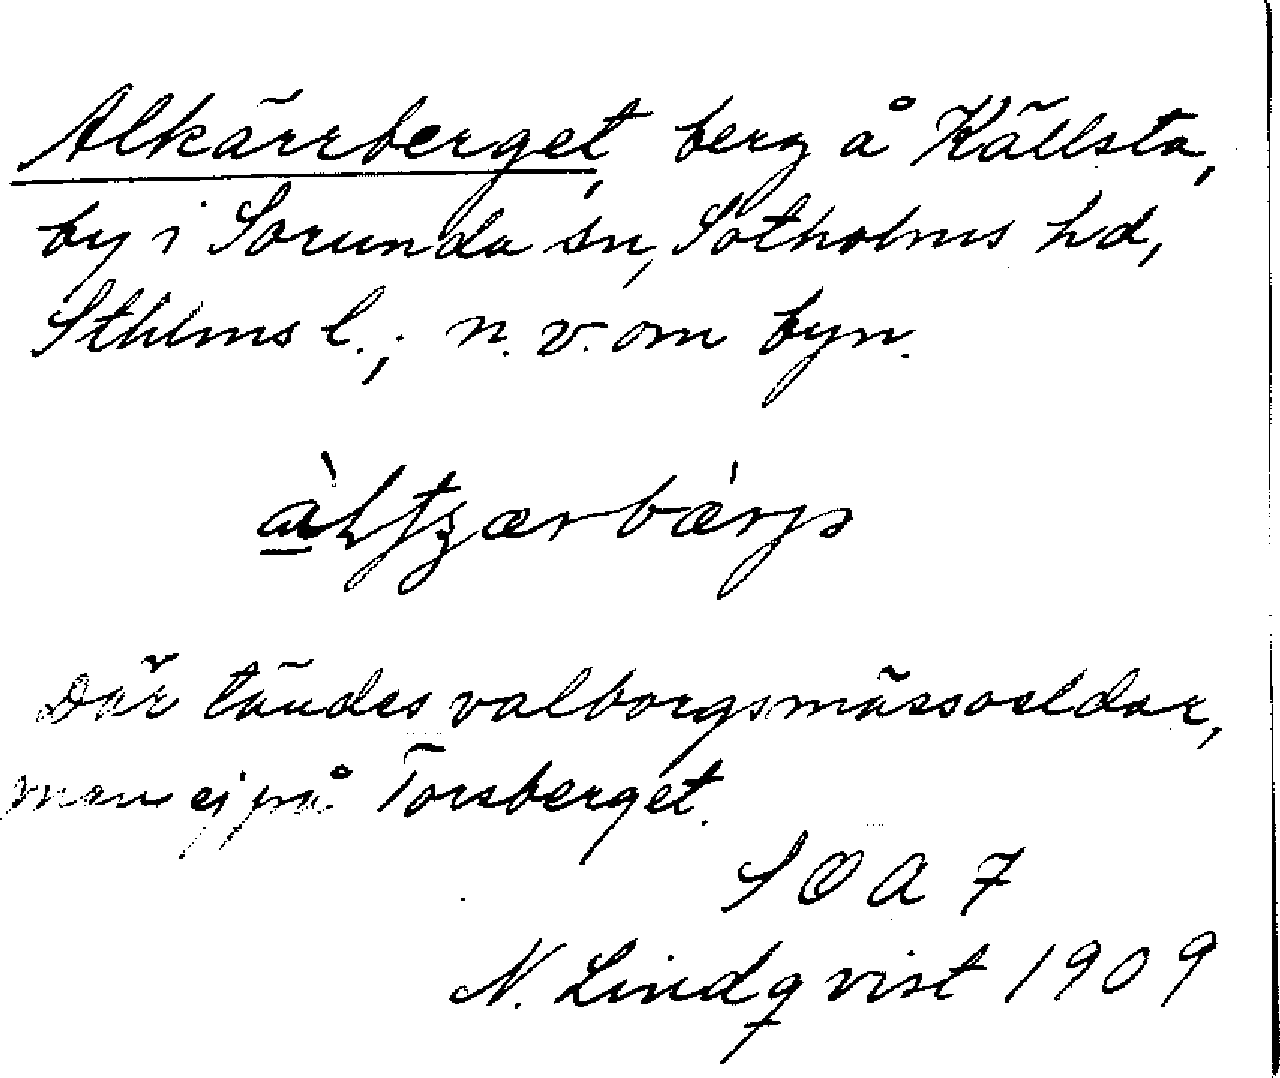 Alkärrberget, berg å Källsta,
by i Sorunda sn, Sotholms hd,
Sthlms l.; n. v. om byn.
Där tändes valborgsmässoeldar,
men ej på Torsberget.
S O A 7
N. Lindqvist 1909